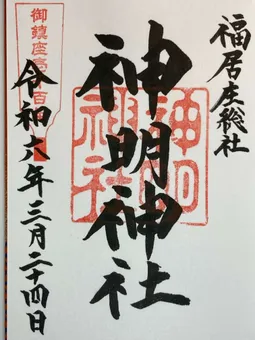 福居庄総社
神明神社
神明
神社
御鎮座
百
令和六年三月二十四日